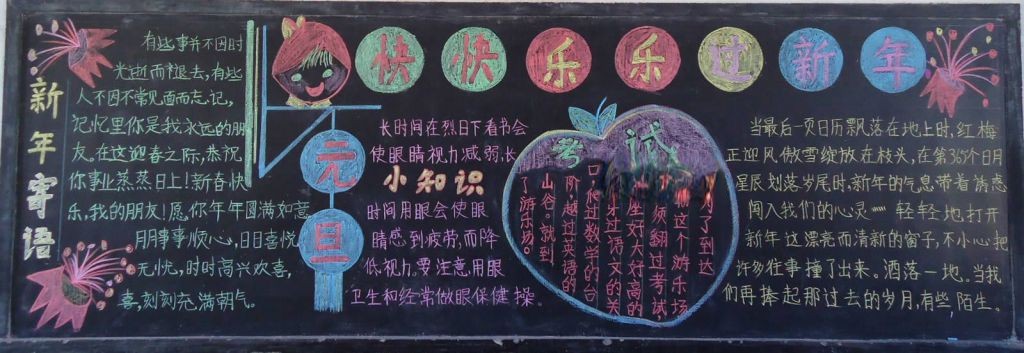 快快乐乐过新年
新年寄语
有些事并不因时
光逝而褪去,有些
人不因不常见面而忘记,
记忆里你是我永远的朋
友。在这迎春之际,恭祝
你事业蒸蒸日上!新春快
乐,我的朋友!愿。你年年圆满如意
月月事事顺心,日日喜悦
无忧,时时高兴欢喜,
喜,刻刻充满朝气。
元旦
长时间在烈日下看书会
使眼睛视力减弱,长
小知识
时间用眼会使眼
睛感到疲劳,而降
低视力。要注意用眼
卫生和经常做眼保健操。
考试
了到达
这个游乐场
须翻过考试,
座好大对高的
过语文的关
口,爬过数学的台
阶,越过英语的
山谷。就到
了游乐场。
当最后一页日历飘落在地上时,红梅
正迎风傲雪绽放在枝头,在第365个日月
星辰划落岁尾时,新年的气息,带着诱惑
闯入我们的心灵……轻轻地打开
新年这漂亮而清新的窗子,不小心把
许多往事撞了出来。洒落一地。当我
们再捧起那过去的岁月,有些,陌生。